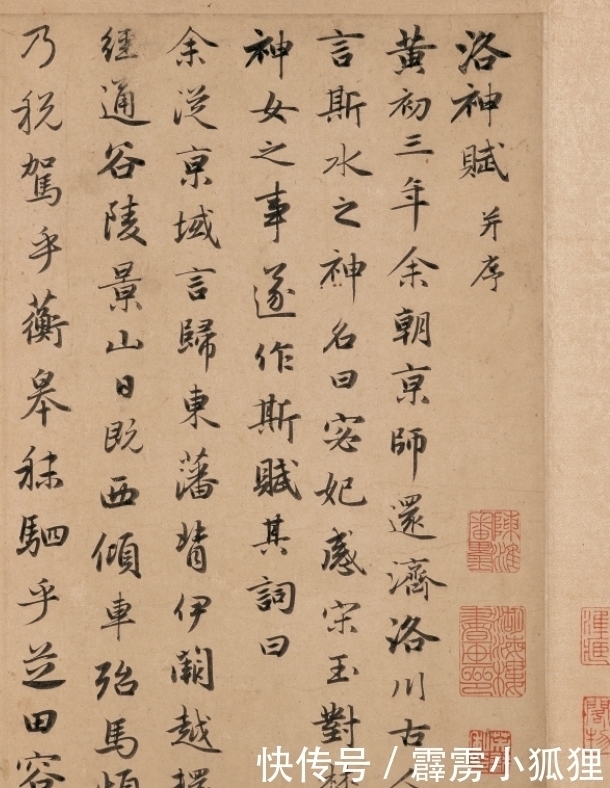 洛神賦 并序
黃初三年余朝京師還濟洛川古人
言斯水之神名曰宓妃感宋玉對
神女之事遂作斯賦其詞曰
余從京域言歸東藩背伊闕越
經通谷陵景山日既西傾車殆馬煩
乃稅駕乎蘅皋秣駟乎芝田容
快传号 / 霹雳小狐狸